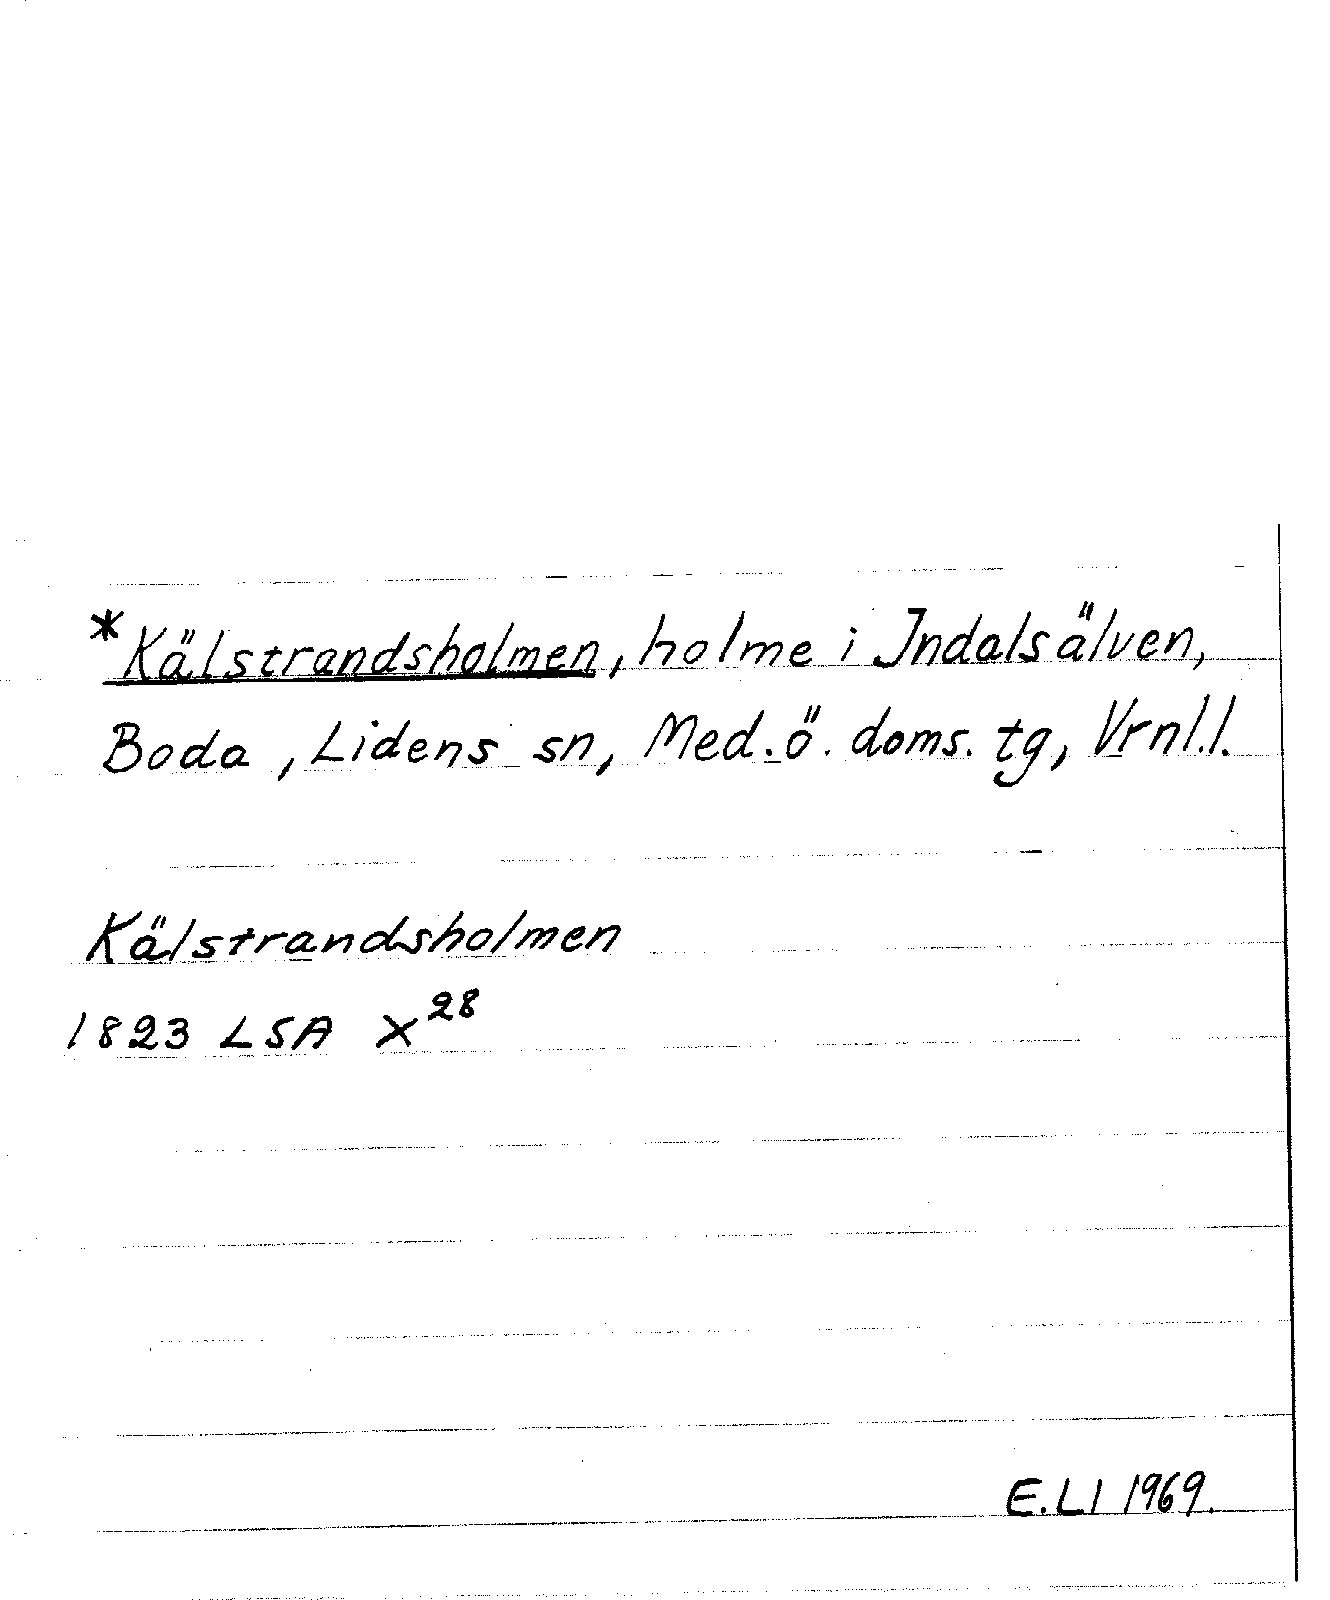 *Kälstrandsholmen, holme i Indalsälven,
Boda, Lidens sn, Med.ö. doms. tg, Vrnl.l.
Kälstrandsholmen
1823 LSA X²⁸
E.LI 1969.